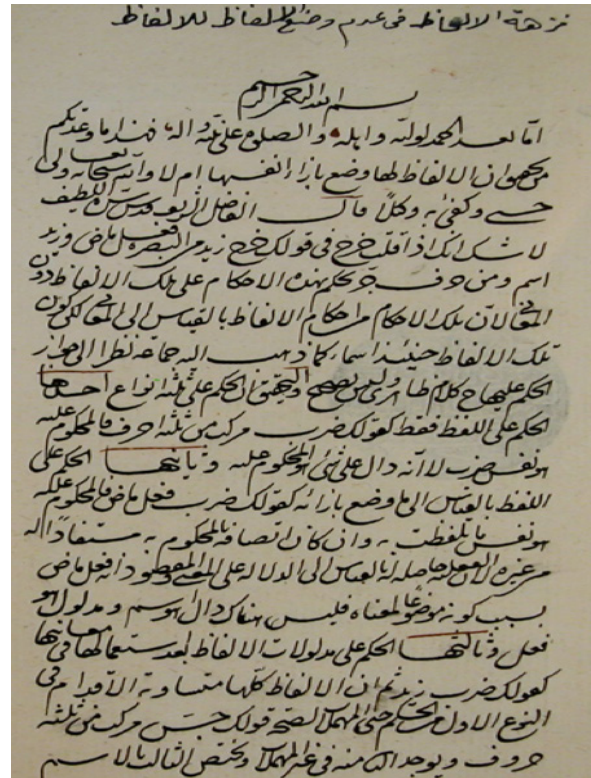 نزهة الالحاظ فى عدم وضع الالفاظ للالفاظ
بسم الله الرحمن الرحيم
اما بعد الحمد لوليه واهله والصلوة على نبيه واله فهذا ما وعدتكم
من تحقيق ان الالفاظ لها وضع بازاء انفسها ام لا والله سبحانه وتعالى ولى
حسبى وكفى به وكلا قال الفاضل الشريف قدس سره اللطيف
لا شك انك اذا قلت خرج فى قولك خرج زيد من البصرة فعل ماض وزيد
اسم ومن حرف جر تحكم بهذه الاحكام على تلك الالفاظ دون
المعانى لان تلك الاحكام من احكام الالفاظ بالقياس الى المعانى لكن كون
تلك الالفاظ حينئذ اسماء كما ذهب اليه جماعة نظرا الى جواز
الحكم عليها كلام ظاهرى وليس بصحيح والتحقيق ان الحكم على ثلثة انواع احدها
الحكم على اللفظ فقط كقولك ضرب مركب من ثلثة احرف فالمحكوم عليه
هو نفس ضرب لا انه دال على شئ هو المحكوم عليه وثانيها الحكم على
اللفظ بالقياس الى ما وضع بازائه كقولك ضرب فعل ماض فالمحكوم عليه
هو نفس ما تلفظت به وان كان اتصافه بالمحكوم به مستفادا له
من غيره لان الفعلية حاصلة له بالقياس الى الدلالة على المعنى والمقصود انه فعل ماض
بسبب كونه موضوعا لمعناه فليس هناك دال هو اسم ومدلول هو
فعل وثالثها الحكم على مدلولات الالفاظ بعد استعمالها فى معانيها
كقولك ضرب زيد ثم ان الالفاظ كلها متساوية الاقدام فى
النوع الاول من الحكم حتى المهملات لصحة قولك جسق مركب من ثلثة
حروف ويوجد الثانى منه فى غير المهملات ويختص الثالث بالاسم